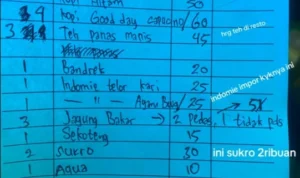 Kopi Hitam 50
4 Kopi Good day capucino/60
3 Teh panas manis 45
hrg teh di resto
1 Bandrek 20
indomie impor kyknya ini
1 Indomie telor kari 25
1 — " — Ayam Bawang/25 5X
3 Jagung Bakar → 2 Pedas, 1 tidak pds
1 Sekoteng 15
2 Sukro 30 ini sukro 2ribuan
1 Aqua 10